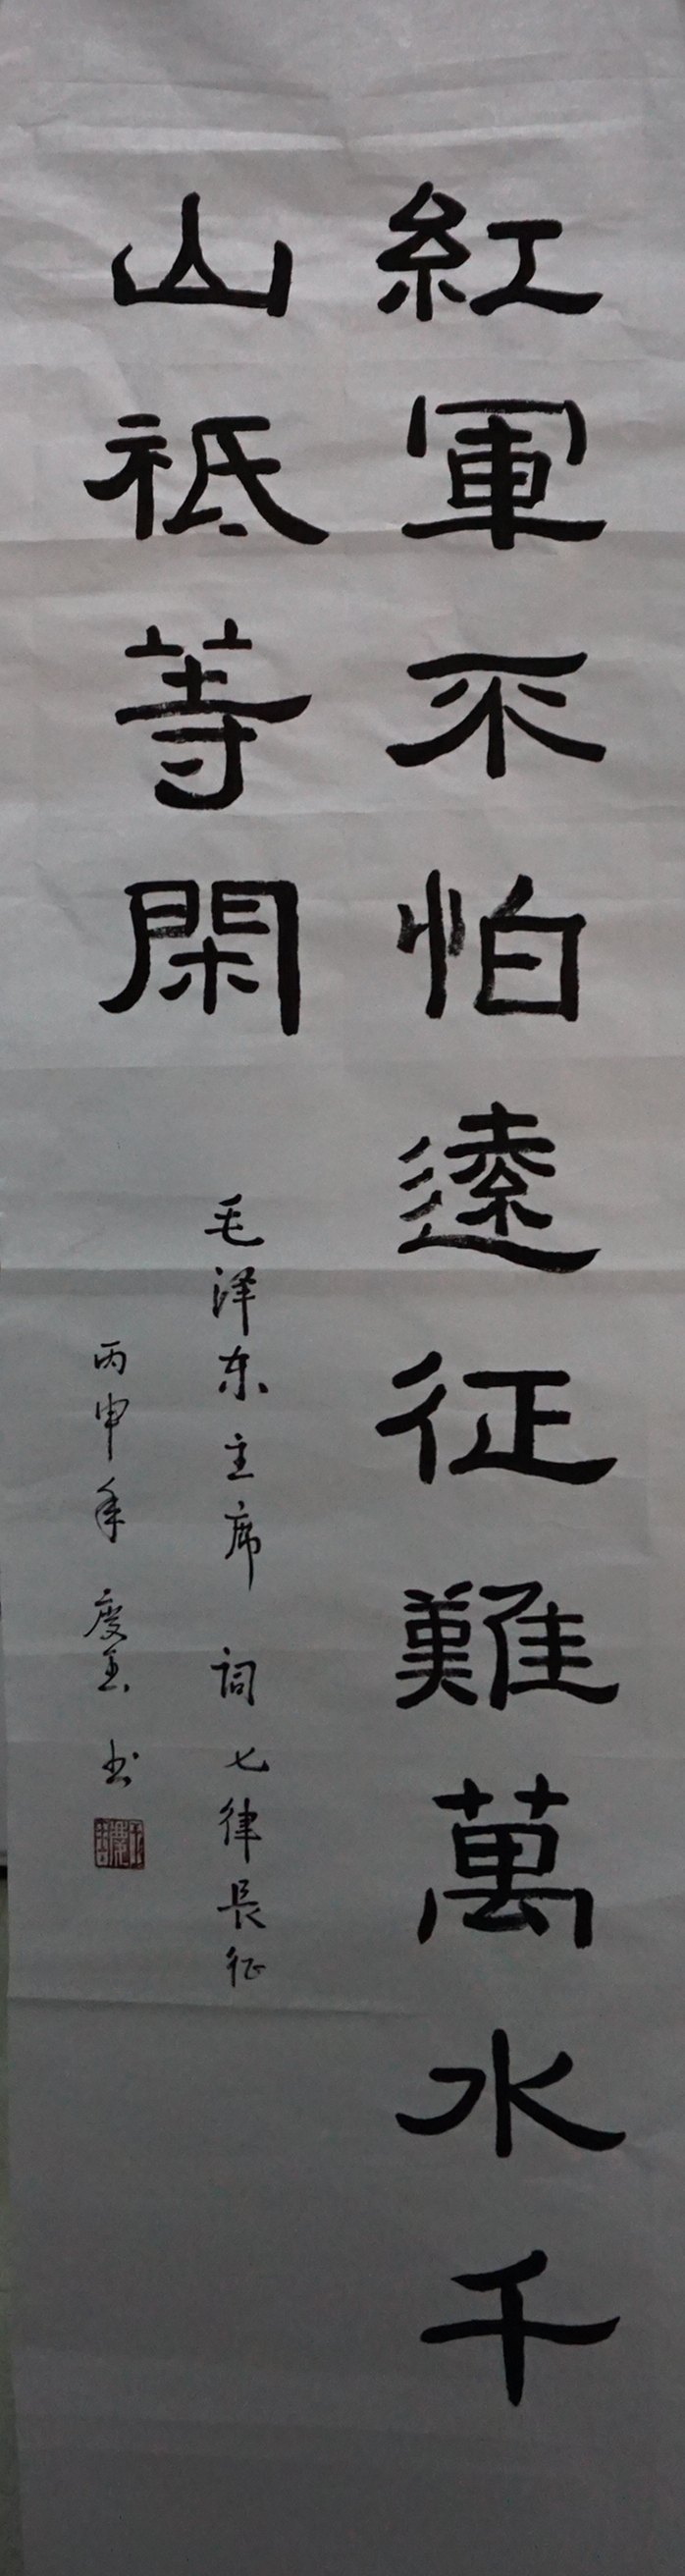 紅軍不怕遠征難萬水千
山祇等閑
毛泽东主席 词 七律長征
丙申年 书